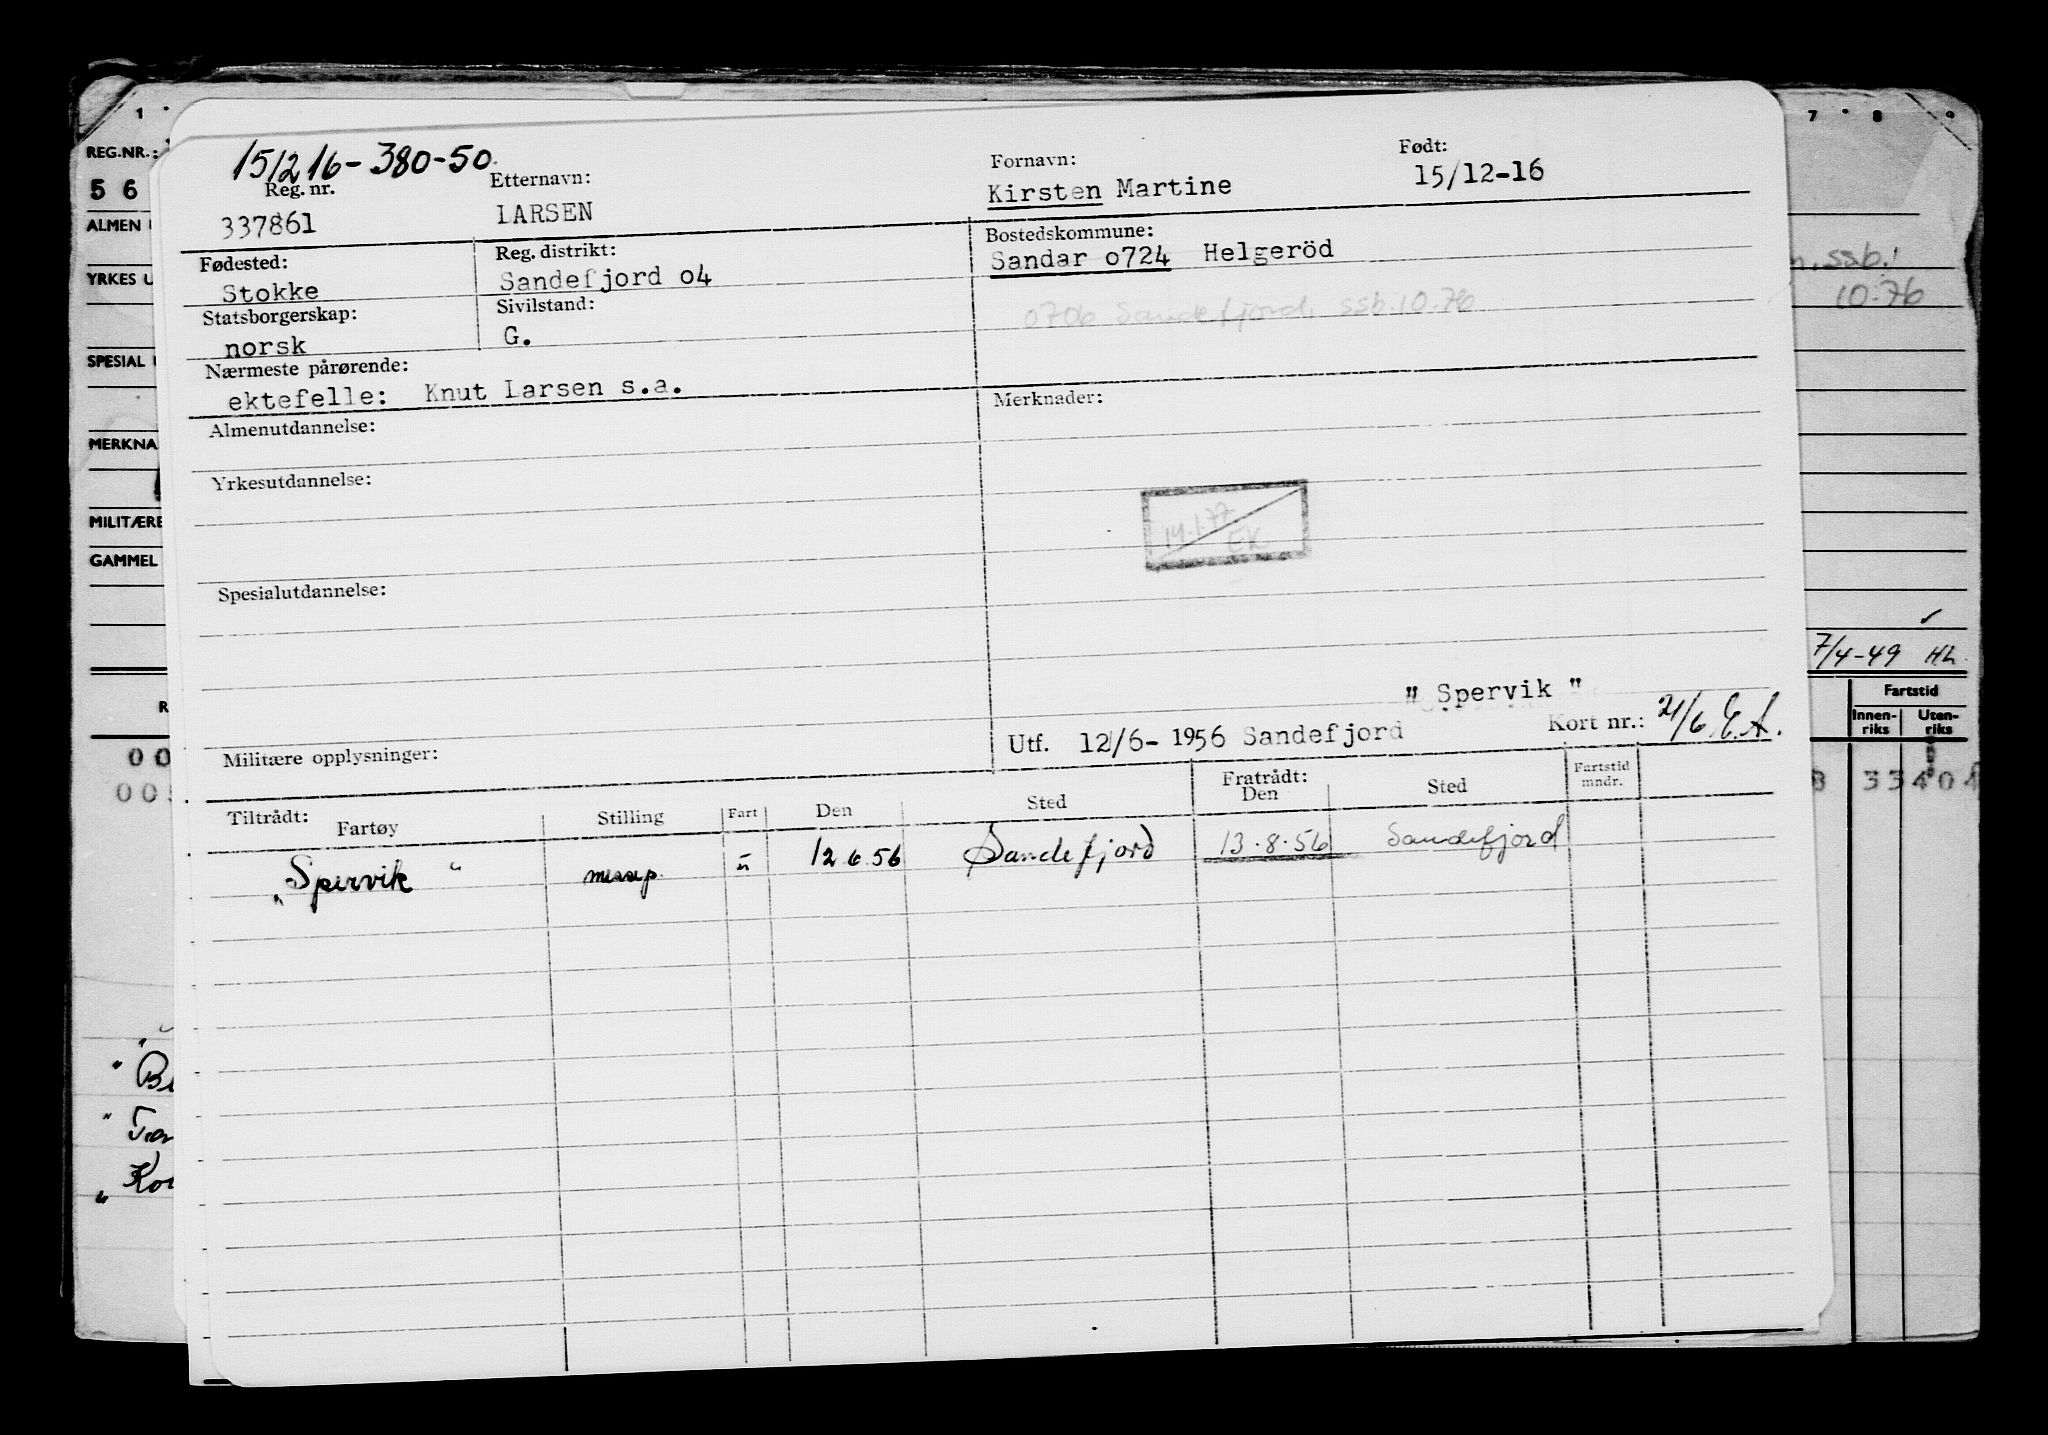 1 7 8 9
REG.NR.:
5 6
ALMEN
YRKES U
SPESIAL
MERKNA
MILITÆRE
GAMMEL
151216-380-50
Reg. nr. Etternavn: Fornavn: Født:
337861 LARSEN Kirsten Martine 15/12-16
Fødested: Reg. distrikt: Bostedskommune:
Stokke Sandefjord o4 Sandar o724 Helgeröd
Statsborgerskap: Sivilstand:
norsk G.
0706 Sandefjord, ssb.10.76
ssb.
10.76
Nærmeste pårørende:
ektefelle: Knut Larsen s.a.
Almenutdannelse: Merknader:
Yrkesutdannelse:
14.1.77
EK
Spesialutdannelse:
7/4-49 HL.
" Spervik "
Militære opplysninger: Utf. 12/6- 1956 Sandefjord Kort nr.: 21/6 E.A.
Fartstid
Innen-riks Uten-riks
Tiltrådt: Fratrådt:
Fartøy Stilling Fart Den Sted Den Sted Fartstid mndr.
"Spervik" messep. u 12 6 56 Sandefjord 13.8.56 Sandefjord